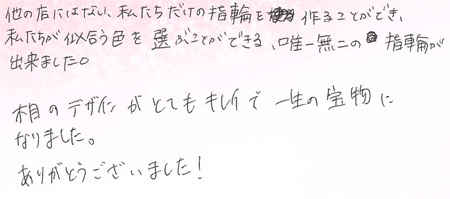 他の店にはない、私たちだけの指輪を作ることができ、
私たちが似合う色を選ぶことができる、唯一無二の指輪が
出来ました。
木目のデザインがとてもキレイで一生の宝物に
なりました。
ありがとうございました!